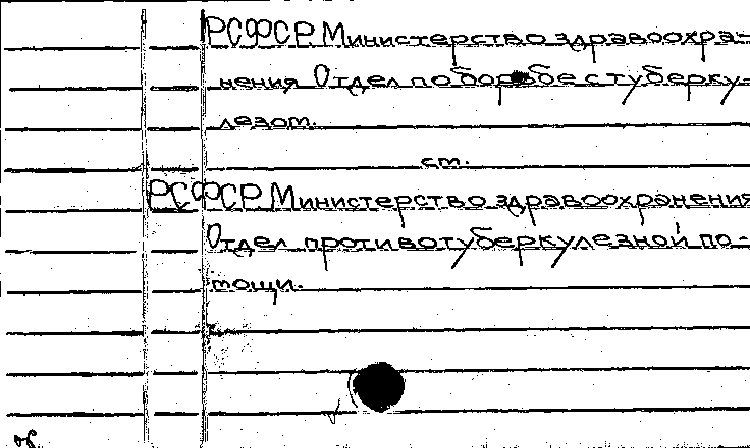 РСФСР. Министерство здравоохра-
нения Отдел по борьбе с туберку-
лезом.
ст.
РСФСР. Министерство здравоохранения
Отдел противотуберкулезной по-
мощи.